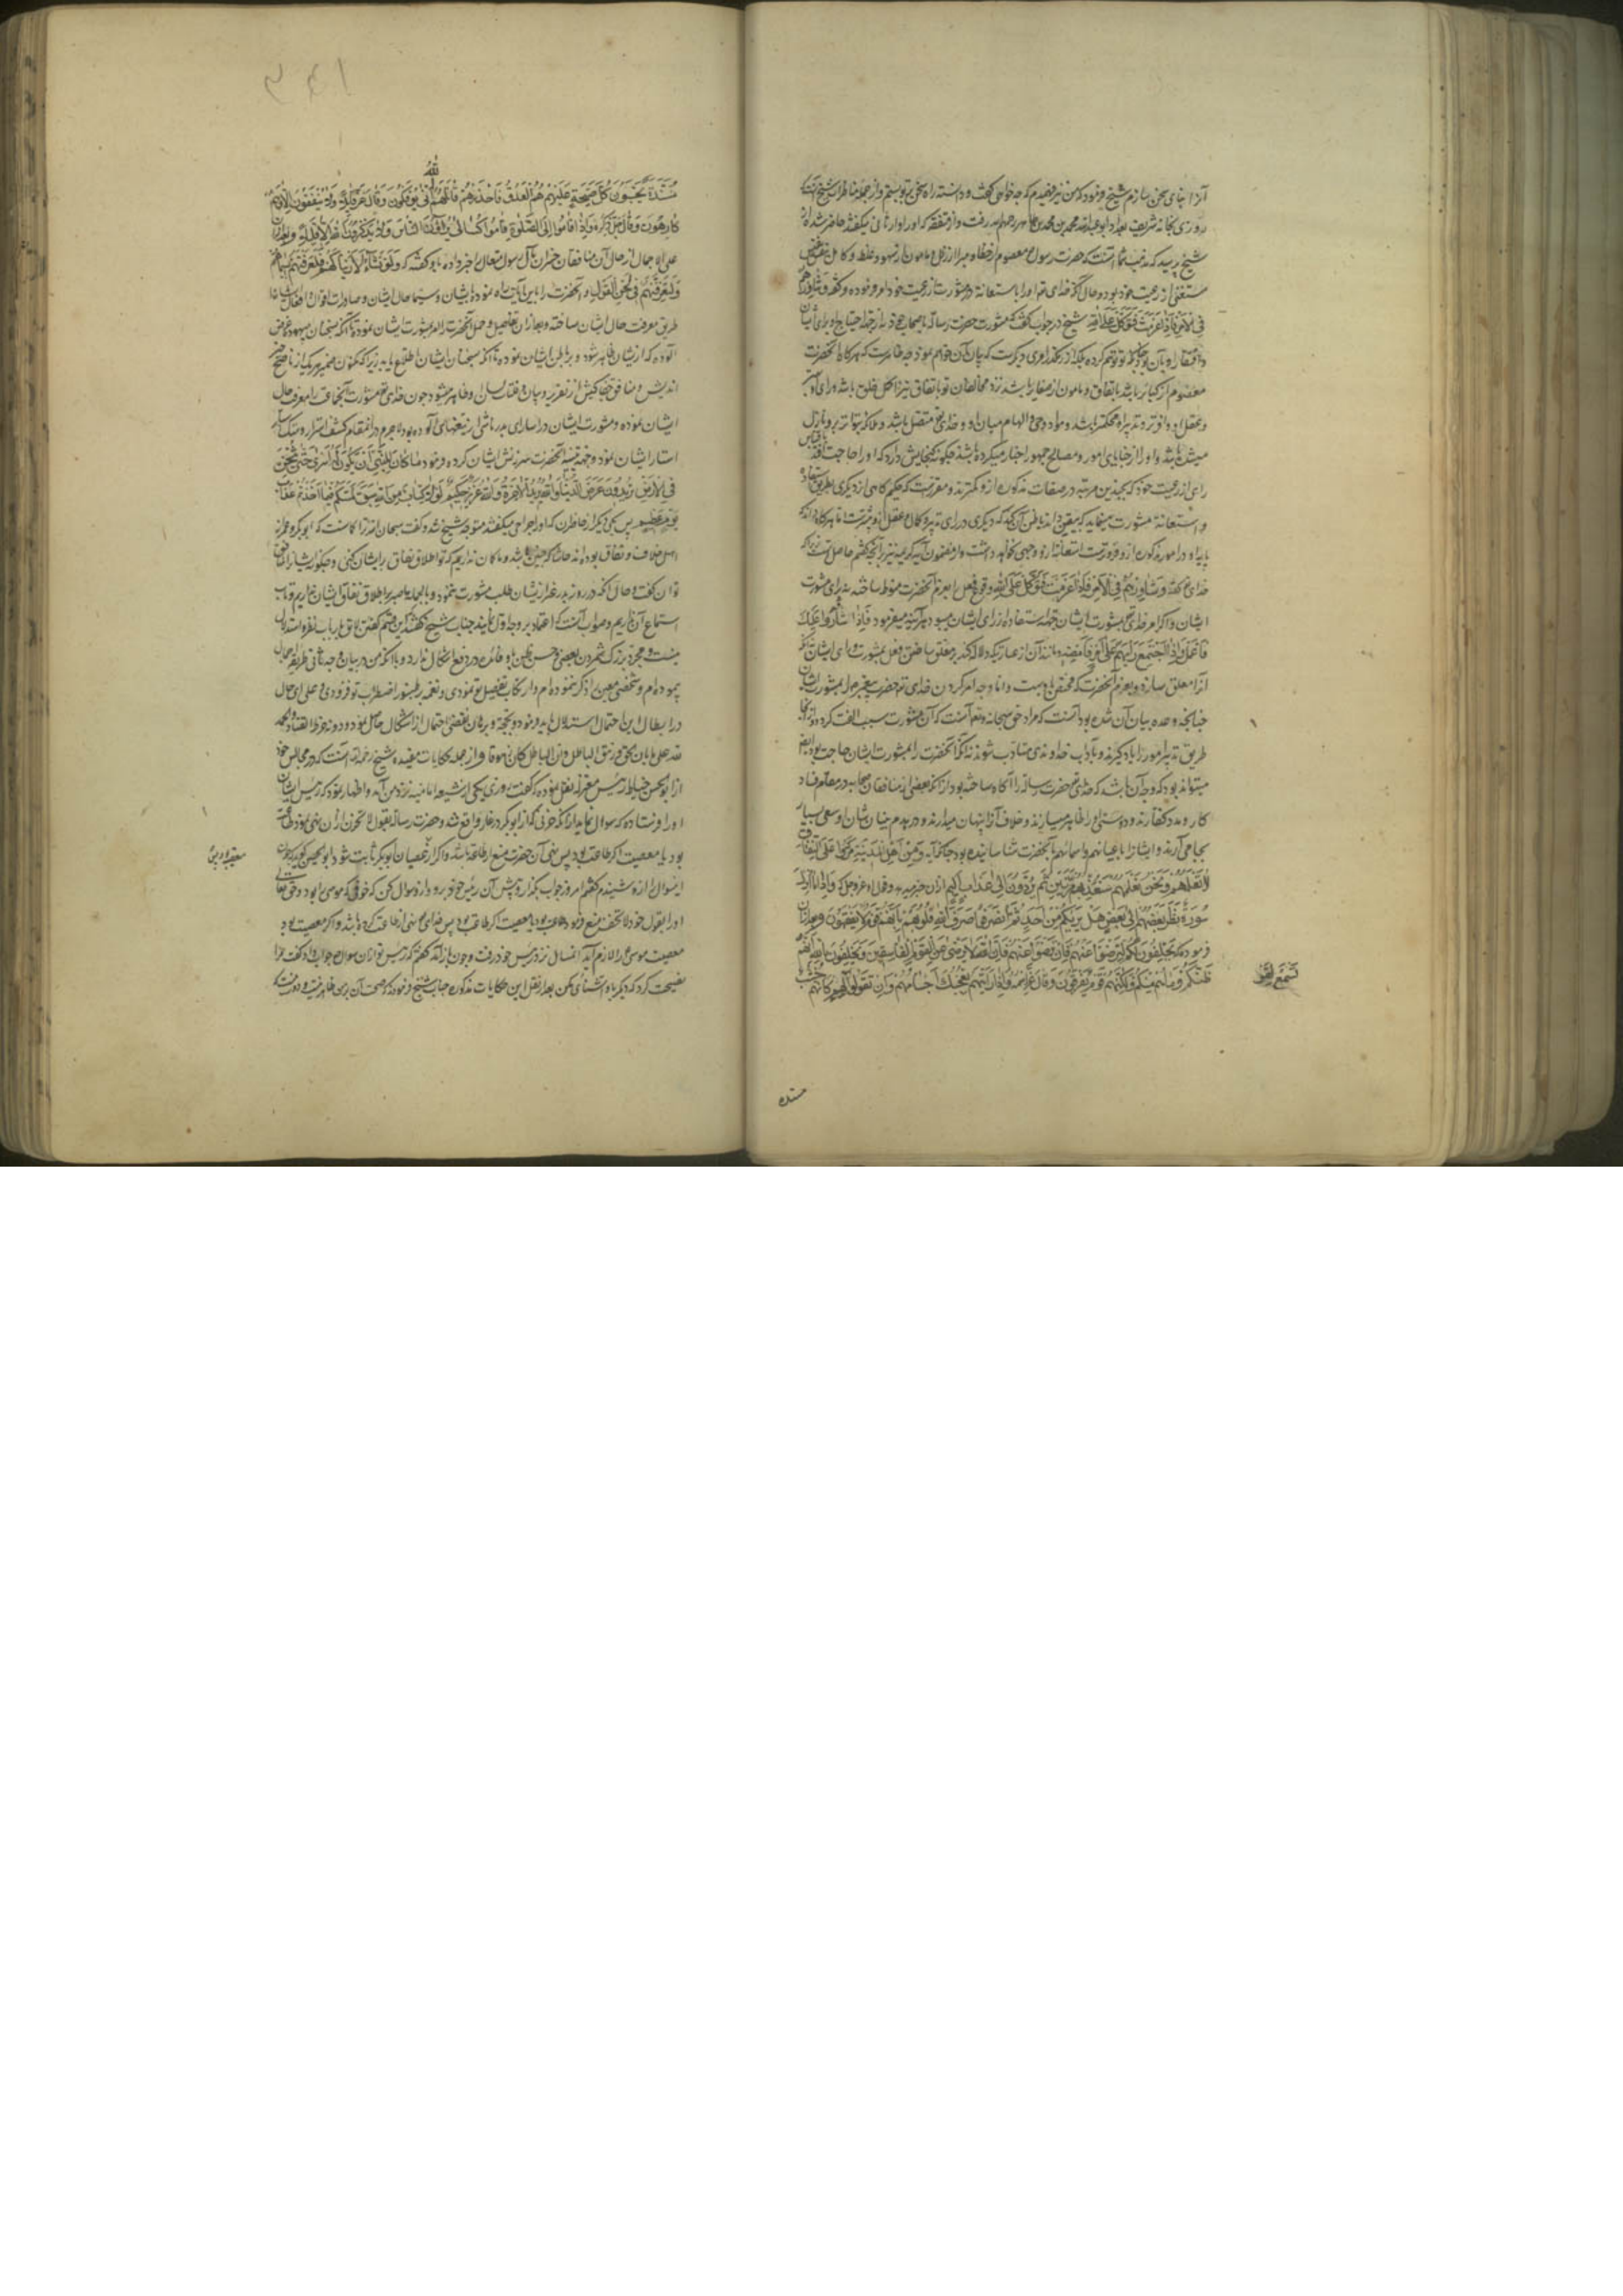 آنرا بنای سخن سازم شیخ فرمود که من نیز فهمیدم که چه خواهی گفت و دانسته راه سخن بر تو بستم و از جمله مناظرات شیخ آنست که
روزی بخانه شریف بغداد ابو عبدالله محمد بن محمد بن طاهر رحمهم الله رفت و از متفقهه که او را ورثانی میگفتند حاضر شده از
شیخ پرسید که مذهب شما آنست که حضرت رسول معصوم از خطا و مبرا از زلل و مامون از سهو و غلط و کامل بنفس خویش
مستغنی از رعیت خود بود و حال آنکه خدای تعالی او را باستعانة و مشورت از رعیت خود امر فرموده و گفته وَشاوِرْهُمْ
فِی الْاَمْرِ فَاِذا عَزَمْتَ فَتَوَکَّلْ عَلَی اللهِ شیخ در جواب گفت که مشورت حضرت رسالة با صحابه از جهة احتیاج او برای ایشان
وافتقار او بآن نبود چنانکه تو توهم کرده بلکه از رهگذر امری دیگرست که بیان آن خواهم نمود چه ظاهرست که هرگاه آنحضرت
معصوم از کبایر باشد باتفاق و مامون از صغایر باشد نزد ما بخلاف تو باتفاق نیز اکمل خلق باشد و رای او
و عقل او وافرتر و تدبیر او محکمتر باشد و مواد وحی و الهام میان او و خدای تعالی متصل باشد و ملائکه بتواتر برو نازل
میشده باشند و او را از خبایای امور و مصالح جمهور اخبار میکرده باشند چگونه گنجایش دارد که او را حاجت باقتباس
رای از رعیت خود که بچندین مرتبه در صفات مذکوره ازو کمترند و مقررست که حکیم گاهی از دیگری بطریق استفاده
و استعانة مشورت مینماید که بیقین داند یا ظن آن کند که دیگری در رای و تدبیر و کمال عقل ازو برترست اما هرگاه داند که
پایه او در امور مذکوره ازو فروترست استعانة ازو وجهی نخواهد داشت و از مضمون آیه کریمه نیز آنچه گفتیم حاصل است زیرا که
خدای تعالی گفته وَشاوِرْهُمْ فِی الْاَمْرِ فَاِذا عَزَمْتَ فَتَوَکَّلْ عَلَی اللهِ وقوع فعل را بعزم آنحضرت منوط ساخته نه برای مشورت
ایشان و اگر امر خدای تعالی بمشورت ایشان جهة استفاده از رای ایشان میبود هرآینه میفرمود فَاِذا اَشارُوا عَلَیْکَ
فَاعْمَلْ وَ اِذَا اجْتَمَعَ رَأیُهُمْ عَلی اَمْرٍ فَاَمْضِهِ و مانند آن از عباراتیکه دلالت کند بر معلق ساختن فعل بمشورت و رای ایشان نه آنکه
آنرا معلق سازد بعزم آنحضرت که مختص باوست و اما وجه امر کردن خدای تعالی حضرت پیغمبر را بمشورت ایشان
چنانچه وعده بیان آن شده بود آنست که مراد حق سبحانه و تعالی آنست که آن مشورت سبب الفت گردد و از آنجا
طریق تدبیر امور را یاد گیرند و بآداب خداوندی متأدب شوند نه آنکه آنحضرت را بمشورت ایشان حاجت بود و ایضا
میتواند بود که وجه آن باشد که خدای تعالی حضرت رسالة را آگاه ساخته بود از آنکه بعضی از منافقان صحابه در مقام فساد
کار و مدد کفارند و دوستی او را ظاهر میسازند و خلاف آنرا پنهان میدارند و در هدم بنیان شان او سعی بسیار
بجا می آرند و ایشانرا باعیانهم و اسمائهم بآنحضرت نشناسانیده بود چنانکه آیه وَمِنْ اَهْلِ الْمَدینَةِ مَرَدُوا عَلَی النِّفاقِ
لا تَعْلَمُهُمْ نَحْنُ نَعْلَمُهُمْ سَنُعَذِّبُهُمْ مَرَّتَیْنِ ثُمَّ یُرَدُّونَ اِلی عَذابٍ اَلیمٍ ازان خبر میدهد و قوله عز و جل که وَاِذا ما اُنْزِلَتْ
سُورَةٌ نَظَرَ بَعْضُهُمْ اِلی بَعْضٍ هَلْ یَریکُمْ مِنْ اَحَدٍ ثُمَّ انْصَرَفُوا صَرَفَ اللهُ قُلُوبَهُمْ بِاَنَّهُمْ قَوْمٌ لا یَفْقَهُونَ و بعد ازان
فرموده که یَحْلِفُونَ لَکُمْ لِتَرْضَوْا عَنْهُمْ فَاِنْ تَرْضَوْا عَنْهُمْ فَاِنَّ اللهَ لا یَرْضی عَنِ الْقَوْمِ الْفاسِقینَ وَیَحْلِفُونَ بِاللهِ اِنَّهُمْ
لَمِنْکُمْ وَما هُمْ مِنْکُمْ وَلکِنَّهُمْ قَوْمٌ یَفْرَقُونَ وَقال عز اسمه وَاِذا رَاَیْتَهُمْ تُعْجِبُکَ اَجْسامُهُمْ وَاِنْ یَقُولُوا کَاَنَّهُمْ خُشُبٌ
تَسْمَعْ لِقَوْ
مسنده
الله
مُسَنَّدَةٌ یَحْسَبُونَ کُلَّ صَیْحَةٍ عَلَیْهِمْ هُمُ الْعَدُوُّ فَاحْذَرْهُمْ قاتَلَهُمُ اَنّی یُؤْفَکُونَ وَقال عز قائله وَلا یُنْفِقُونَ اِلّا وَهُمْ
کارِهُونَ وَقال جل ذکره وَاِذا قامُوا اِلَی الصَّلوةِ قامُوا کُسالی یُراؤُنَ النّاسَ وَلا یَذْکُرُونَ اللهَ اِلّا قَلیلاً و بعد ازان
علی الاجمال از حال آن منافقان خسران مآل رسول متعال را خبر داده باو گفته که وَلَوْ نَشاءُ لَاَرَیْناکَهُمْ فَلَعَرَفْتَهُمْ بِسیماهُمْ
وَلَتَعْرِفَنَّهُمْ فی لَحْنِ الْقَوْلِ و آنحضرت را باین آیات راه نموده بایشان و سیما حال ایشان و صادرات اقوال و افعال ایشان را
طریق معرفت حال ایشان ساخته و بعد ازان تفصیل و حمل آنحضرت را امر بمشورت ایشان نموده تا آنکه سخنان بیهوده غرض
آلوده که از ایشان ظاهر شود و بر باطن ایشان نموده تا آنکه بسخنان ایشان اطلاع یابد زیرا که مکنون ضمیر هر یک از ناصح خیر
اندیش و منافق جفاکیش از تقریر و بیان و فلتات لسان او ظاهر میشود چون خدای تعالی مشورت آنجماعت را معرف حال
ایشان نموده و مشورت ایشان در اسارای بدر ناشی از نیتهای آلوده بود لاجرم در انمقام کشف اسرار و هتک سایر
استار ایشان نمود و جهة تنبیه آنحضرت سرزنش ایشان کرده و فرمود ما کانَ لِنَبِیٍّ اَنْ یَکُونَ لَهُ اَسْری حَتّی یُثْخِنَ
فِی الْاَرْضِ تُریدُونَ عَرَضَ الدُّنْیا وَاللهُ یُریدُ الْآخِرَةَ وَاللهُ عَزیزٌ حَکیمٌ لَوْلا کِتابٌ مِنَ اللهِ سَبَقَ لَمَسَّکُمْ فیما اَخَذْتُمْ عَذابٌ
عَظیمٌ پس یکی دیگر از حاضران که او را جراحی میگفتند متوجه شیخ شد و گفت سبحان الله ترا گمانست که ابو بکر و عمر از
اهل خلاف و نفاق بوده اند حاشا که چنین باشد و ما گمان نداریم که تو اطلاق نفاق بر ایشان کنی و چگونه ایشانرا منافق
توان گفت و حال آنکه در روز بدر غیر از ایشان طلب مشورت ننمود و بالجمله ما صبر بر اطلاق نفاق ایشان نداریم و تاب
استماع آن نداریم و صواب آنست که اعتماد بر وجه اول نمایند جناب شیخ گفتند که این قسم گفتن لایق بارباب نظر و استدلال
نیست و مجرد بزرگ شمردن بعضی و حسن ظن باو فائده در دفع اشکال ندارد و با آنکه من در بیان وجه ثانی طریقه اجمال
پیموده ام و شخصی معین را ذکر ننموده ام و ارتکاب تفصیل تو نمودی و نغمه بر طنبور اضطراب تو فزودی و علی ای حال
در ابطال این احتمال استدلال باید فرمود و بحجة و برهان نقض احتمال از اشکال حاصل نمود و دونه خرط القتاد و الحمد
لله علی ما بان الحق و زهق الباطل ان الباطل کان زهوقا و از جمله حکایات مفیده شیخ رحمه الله آنست که در مجالس خود
از ابو الحسن خیاط رئیس معتزله نقل نموده که گفت روزی یکی از شیعه امامیه نزد من آمد و اظهار نمود که رئیس ایشان
او را فرستاده که سوال نماید از آنکه حزنی که از ابو بکر در غار واقع شد و حضرت رساله بقول لا تحزن ازان نهی نمود طاعت
بود یا معصیت اگر طاعت بود پس نهی آن حضرت منع از طاعة باشد و اگر از عصیان ابوبکر ثابت شود ابو الحسن گوید چون
اینسوال را ازو شنیدم گفتم امروز جواب بگذار و پیش آن رئیس خود برو و ازو سوال کن که خوفی که موسی را بود و حق تعالی
او را بقول خود لا تخف منع فرمود طاعت بود یا معصیت اگر طاعت بود پس خدای تعالی نهی از طاعت کرده باشد و اگر معصیت بود
معصیت موسی را لازم آید آن سائل نزد رئیس خود رفت و چون باز آمد گفتم که رئیس تو ازان سوال چه جواب داد گفت مرا
نصیحت کرد که دیگر با او آشنائی مکن بعد از نقل این حکایات مذکوره جناب شیخ فرمود که صحت آن بر من ظاهر نیست و دور نیست که